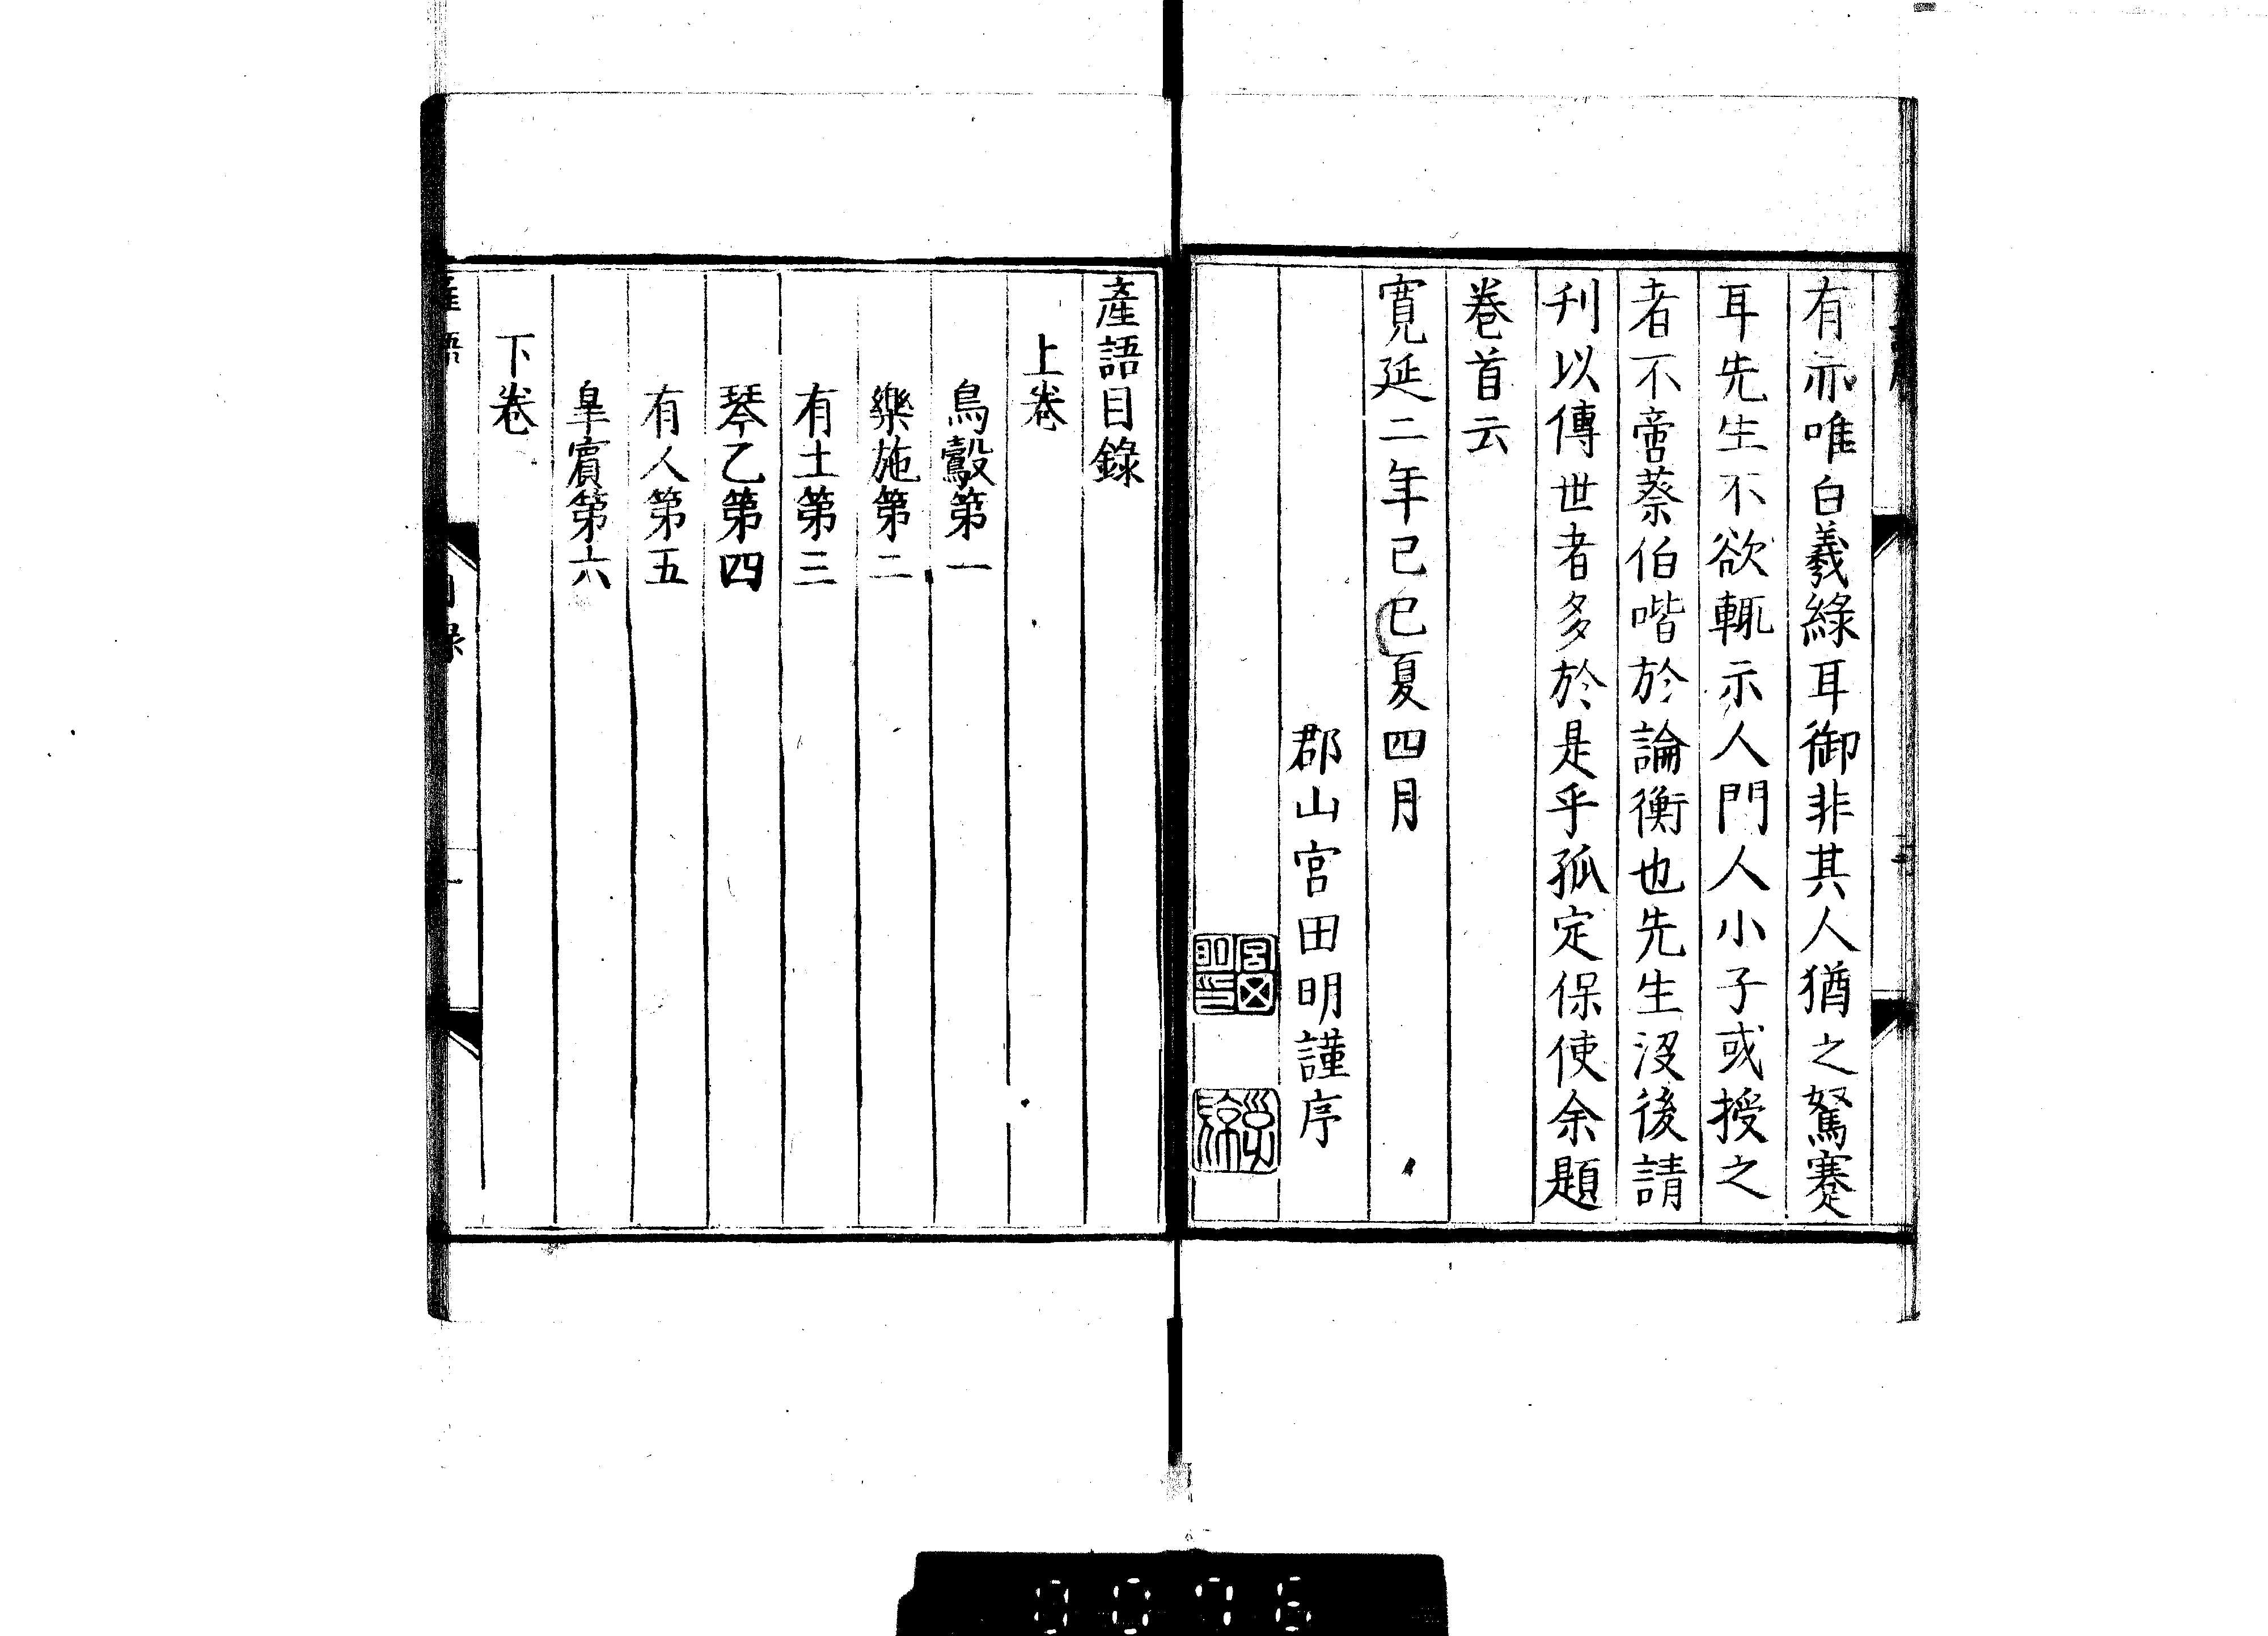 有亦唯白羲綠耳御非其人猶之駑蹇
耳先生不欲輒示人門人小子或授之
者不啻蔡伯喈於論衡也先生沒後請
刊以傳世者多於是乎孤定保使余題
卷首云
寬延二年己巳夏四月
郡山宮田明謹序
產語目錄
上卷
鳥鷇第一
樂施第二
有土第三
琴乙第四
有人第五
皐賓第六
下卷